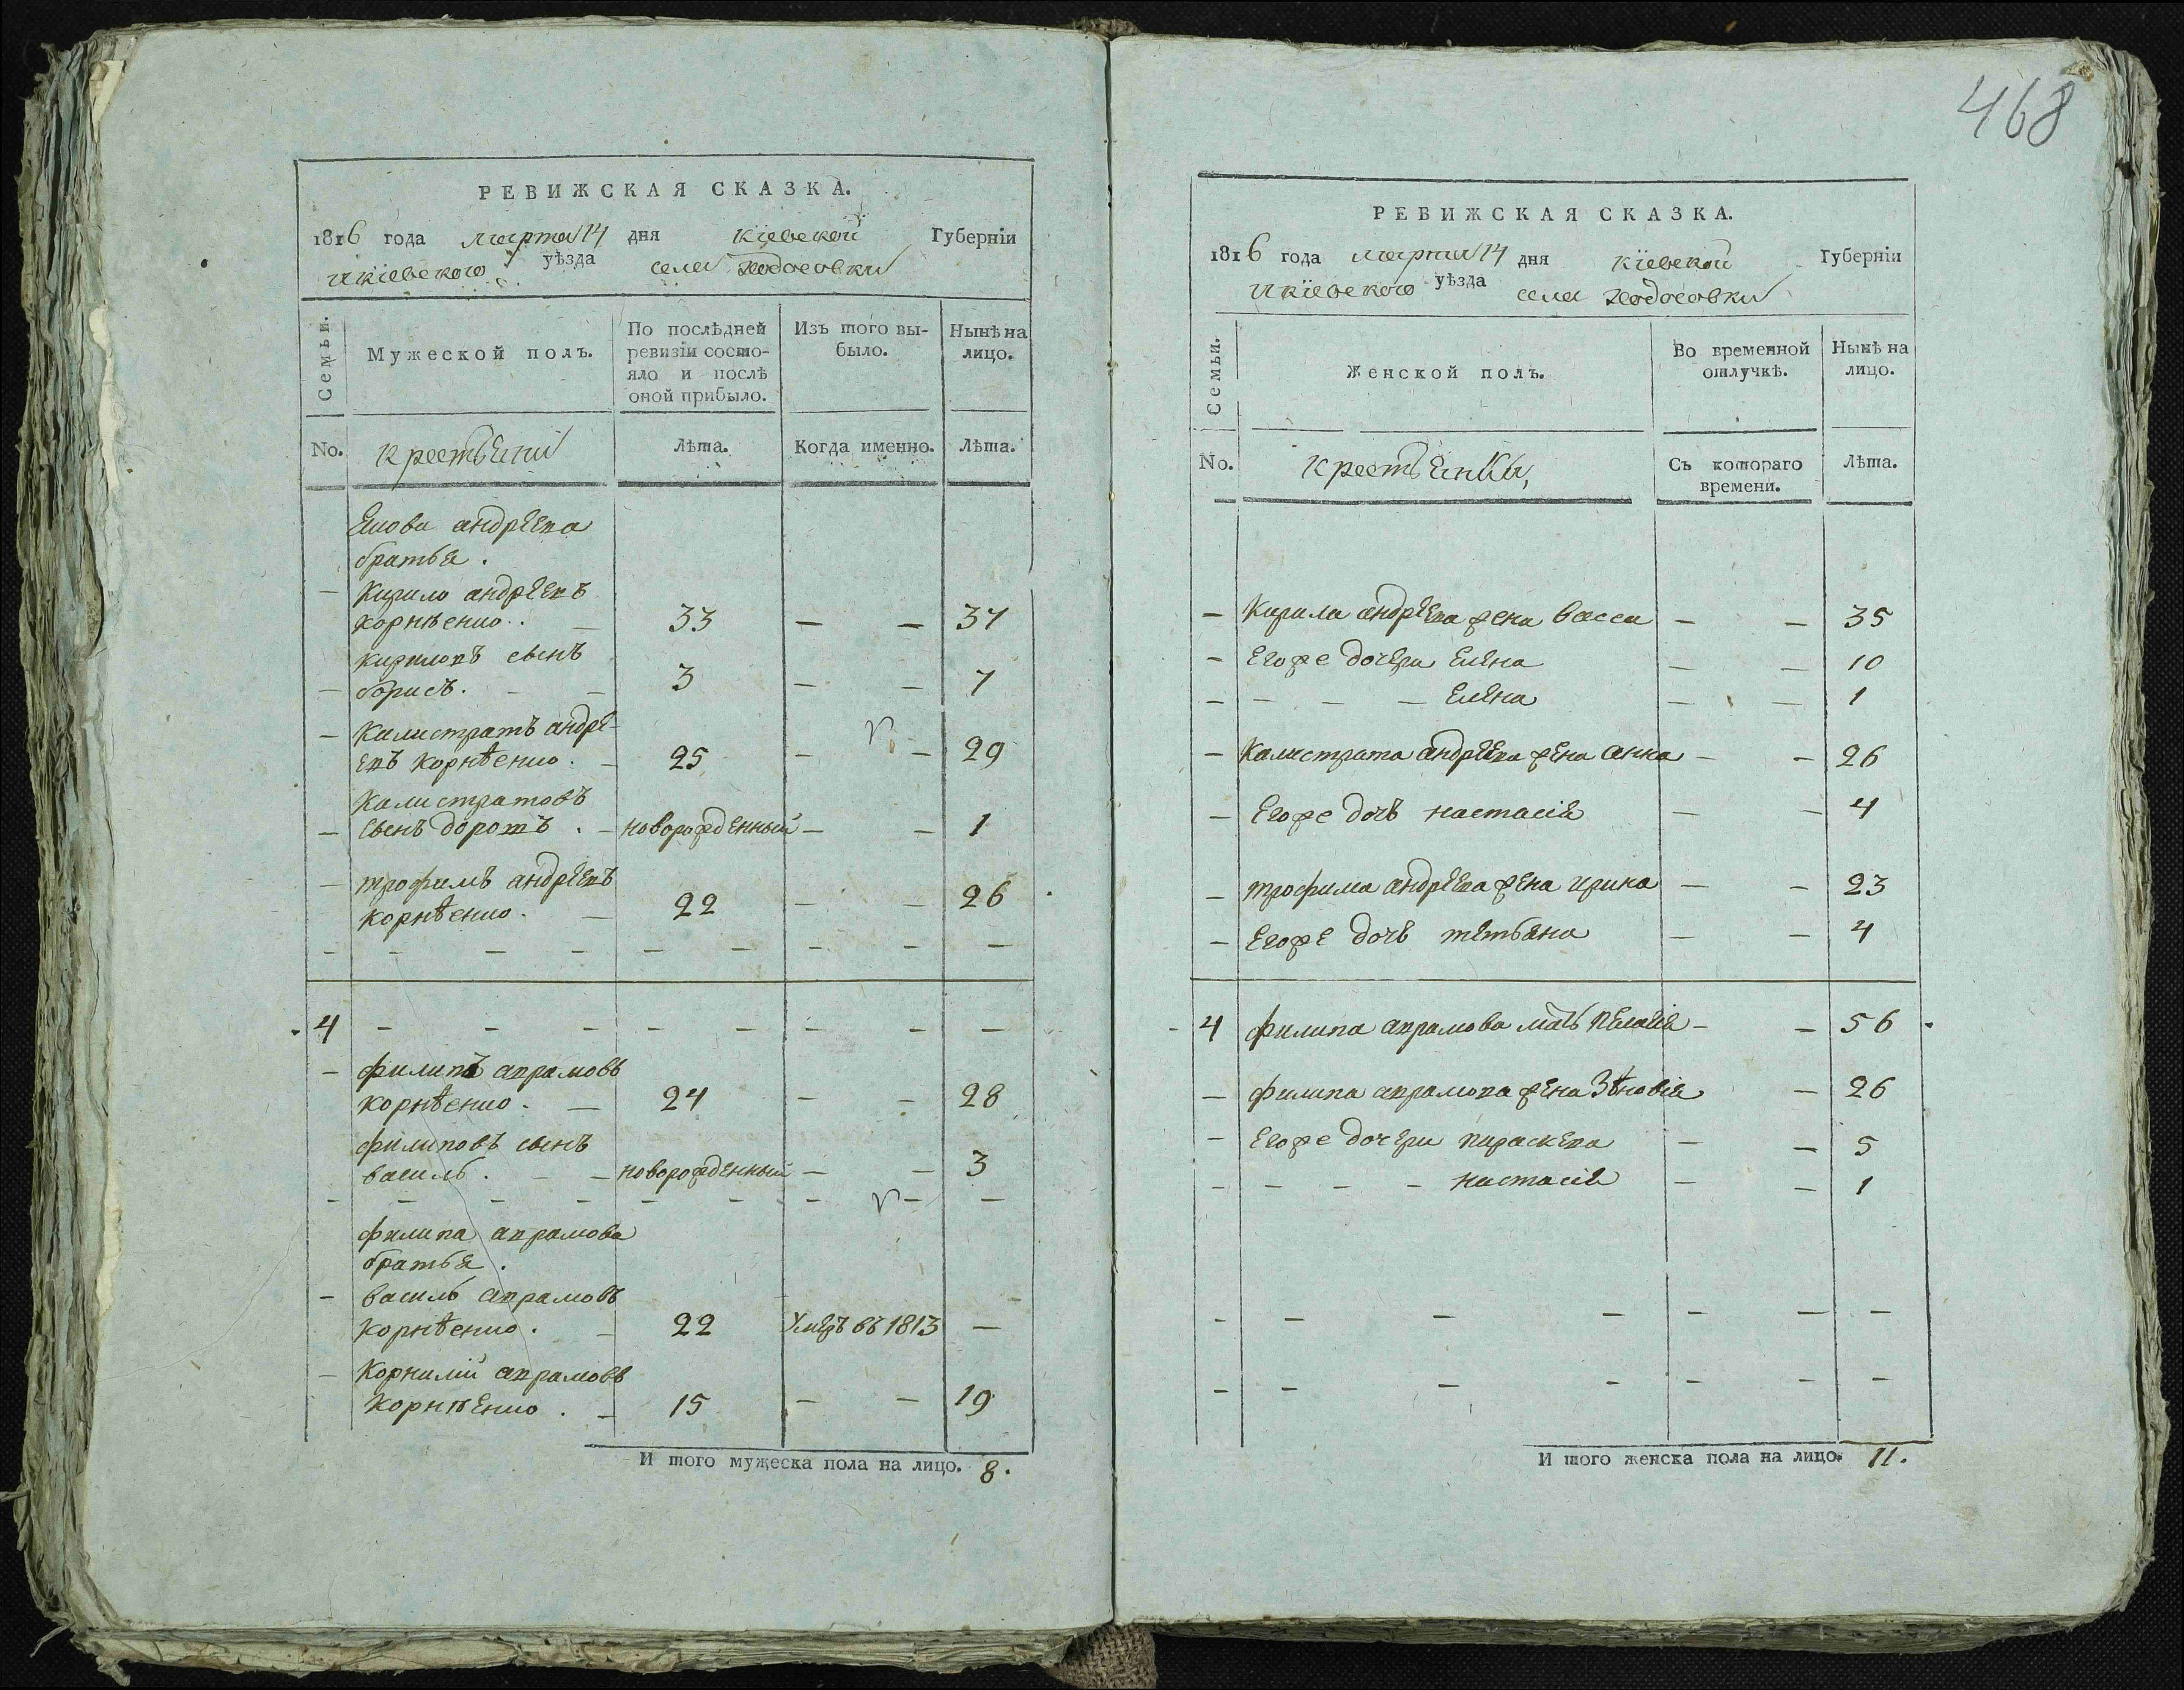 468
РЕВИЖСКАЯ СКАЗКА.
1816 года марта 14 дня кіевской Губерніи
и кіевского уѣзда села ходосовки
Семьи.
Мужеской полъ.
По послѣдней
ревизіи состо-
яло и послѣ
оной прибыло.
Изъ того вы-
было.
Нынѣ на
лицо.
No. крестьяни Лѣта. Когда именно. Лѣта.
андреева
братья.
— Кирило андреевъ
корнѣенко. — 33 — — 37
кириловъ сынъ
— борисъ. — — 3 — — 7
— Калистратъ андре-
евъ корнѣенко. — 25 — — 29
Калистратовъ
— сынъ . — новорожденный — — 1
— трофимъ андреевъ
корнѣенко. — 22 — — 26
— — — — — — — — —
4 — — — — — — — —
— филипъ аврамовъ
корнѣенко. — 24 — — 28
филиповъ сынъ
василь. — — новорожденный — — 3
— — — — — — — — —
филипа аврамова
братья.
— василь аврамовъ
корнѣенко. — 22 Умеръ въ 1813 —
— Корнилий аврамовъ
корнѣенко. — 15 — — 19
И того мужеска пола на лицо. 8.
РЕВИЖСКАЯ СКАЗКА.
1816 года марта 14 дня кіевской Губерніи
и кіевского уѣзда села ходосовки
Семьи.
Женской полъ.
Во временной
отлучкѣ.
Нынѣ на
лицо.
No. крестьянки, Съ котораго
времени. Лѣта.
— Кирила андреева жена васса — — 35
— Егоже дочери елена — — 10
— — — — елена — — 1
— Калистрата андреева жена анна — — 26
— Егоже дочь настасія — — 4
— трофима андреева жена ирина — — 23
— Егоже дочь тетьяна — — 4
4 филипа аврамова мать пелагія — — 56
— филипа аврамова жена Зѣновія — 26
— Егоже дочери параскева — — 5
— — — — настасія — — 1
— — — — — — —
— — — — — — —
И того женска пола на лицо. 11.